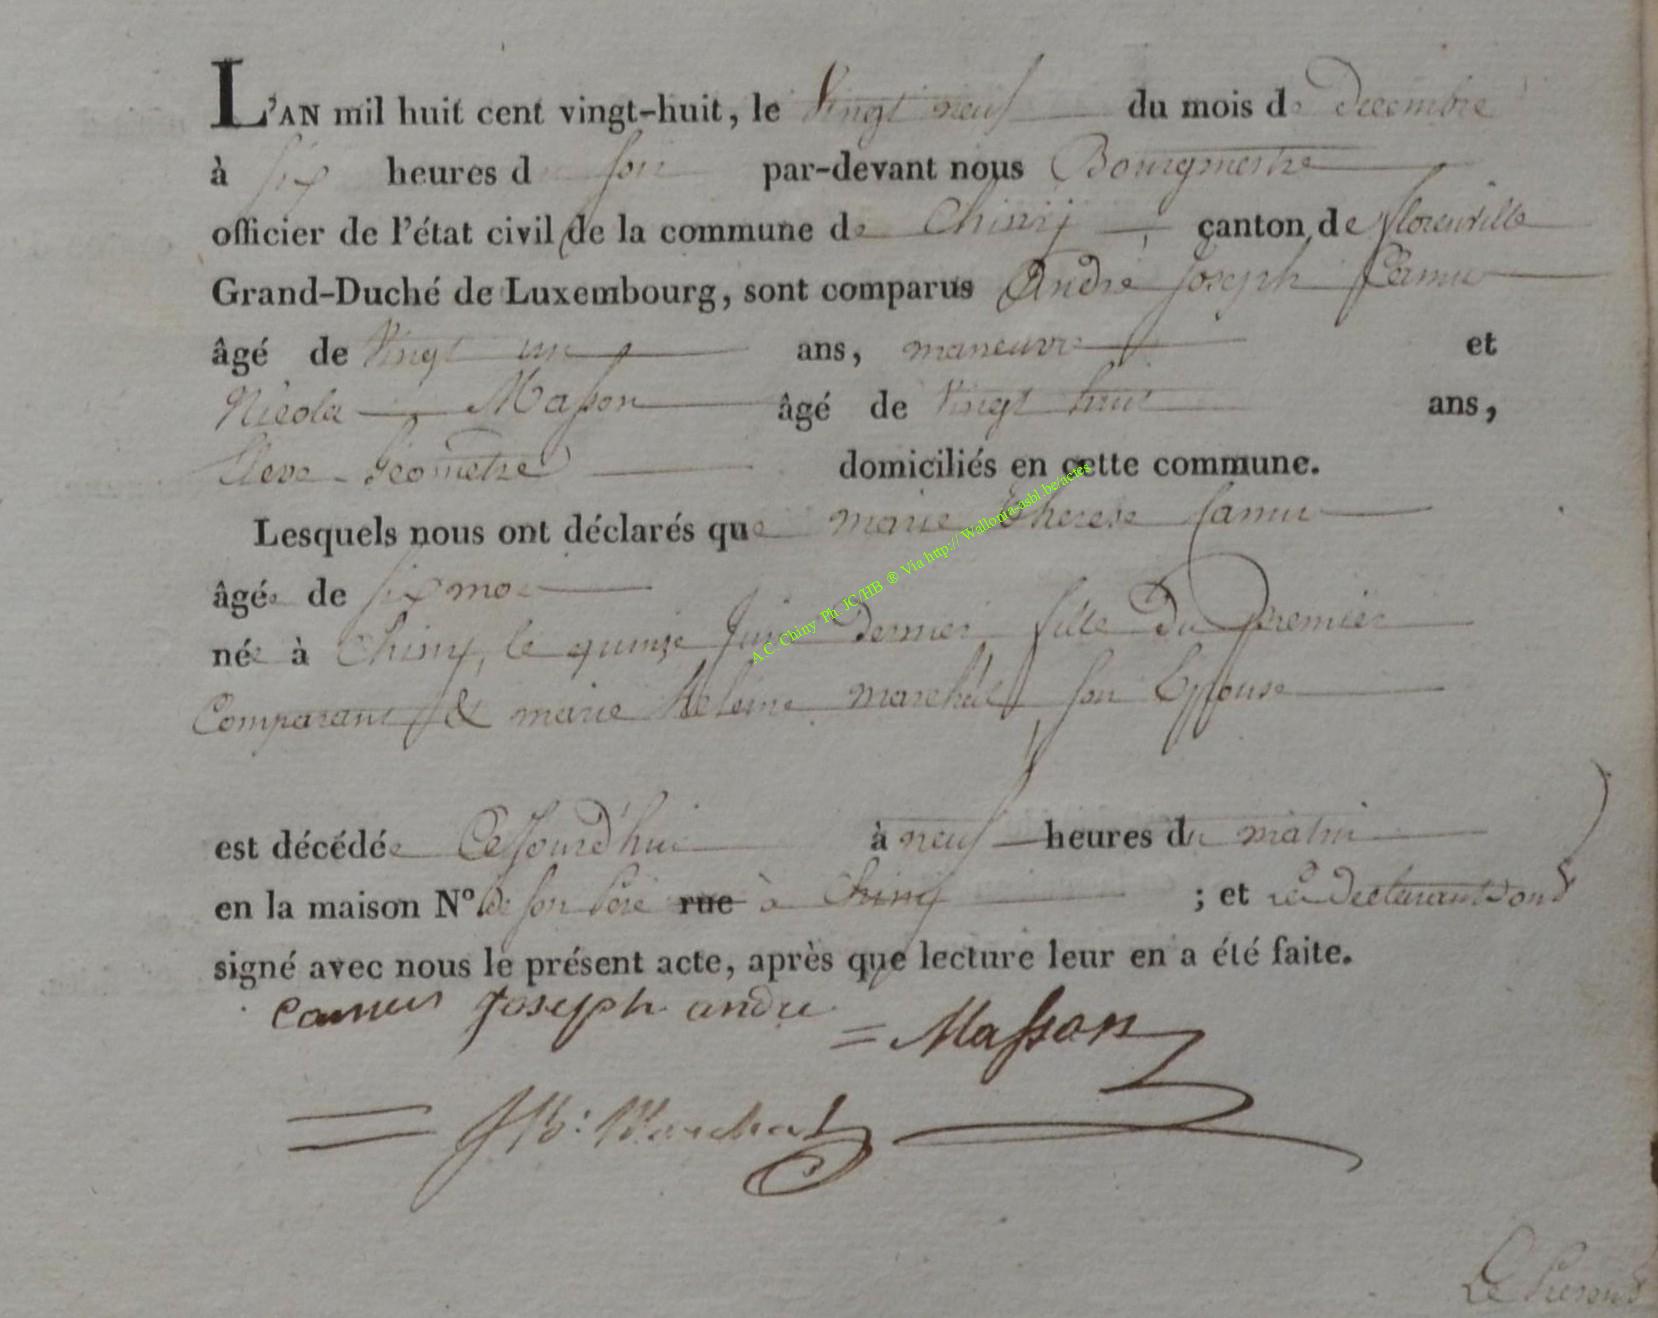 L'AN mil huit cent vingt-huit, le Vingt neuf du mois de Decembre
à six heures d soir par-devant nous Bourgmestre
officier de l'état civil de la commune de Chiny, canton de florenville
Grand-Duché de Luxembourg, sont comparus André Joseph Camu
âgé de Vingt un ans, maneuvre et
Nicola Masson âgé de Vingt huit ans,
Eleve Géometre domiciliés en cette commune.
Lesquels nous ont déclarés que marie Therese Camu
âgée de six moi
née à Chiny, le quinze Juin dernier, fille du premier
Comparant & marie Helene Marchal son Epouse
est décédée Cejourd'hui à neuf heures du matin
en la maison N° de son Pere rue à Chiny ; et les Declarant ont
signé avec nous le présent acte, après que lecture leur en a été faite.
Camus Joseph andre = Masson
J B: Marchal
Le Present
A.C. Chiny Ph JC/HB ® Via http://Wallonia-asbl.be/actes